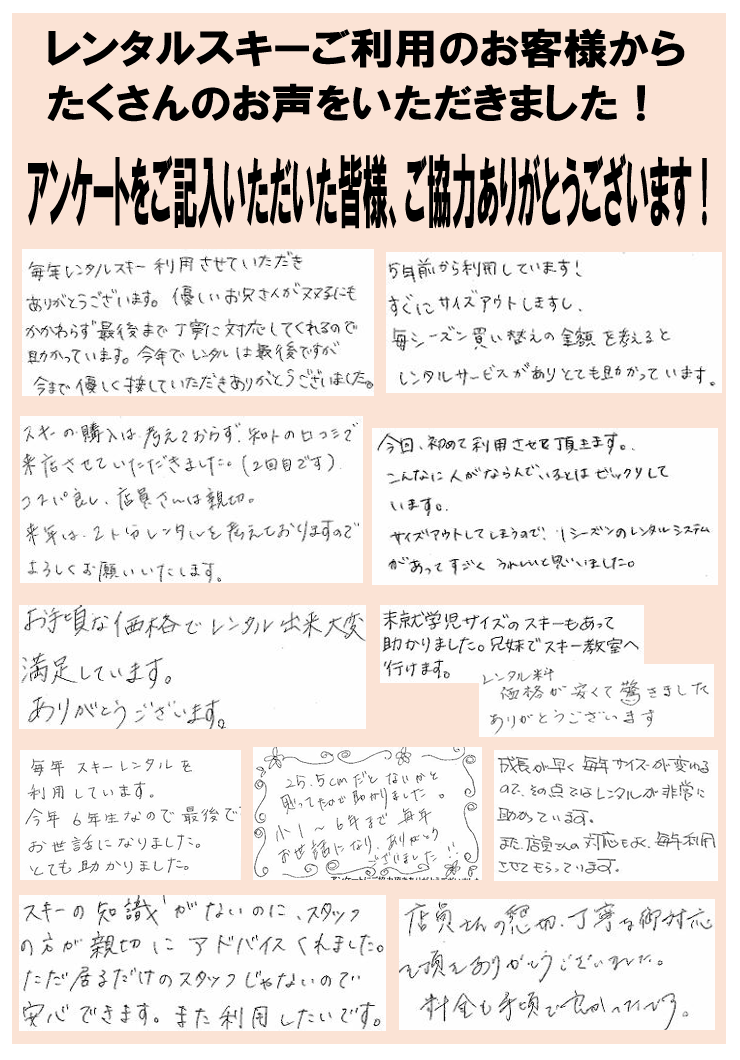 レンタルスキーご利用のお客様から
たくさんのお声をいただきました!
アンケートをご記入いただいた皆様、ご協力ありがとうございます!
毎年レンタルスキー利用させていただき
ありがとうございます。優しいお兄さんがヌルるにも
かかわらず最後まで丁寧に対応してくれるので
助かっています。今年でレンタルは最後ですが
今まで優しく接していただきありがとうございました。
5年前から利用しています!
すぐにサイズアウトしますし、
毎シーズン買い替えの金額を考えると
レンタルサービスがありとても助かっています。
スキーの購入は考えておらず、知人の口コミで
来店させていただきました。(2回目です)
コスパ良し、店員さんは親切。
来年は、2人分レンタルを考えておりますので
よろしくお願いいたします。
今回、初めて利用させて頂きます。
こんなに人がならんでいるとはビックリして
います。
サイズアウトしてしまうので、1シーズンのレンタルシステム
があってすごくうれしいと思いました。
お手頃な価格でレンタル出来大変
満足しています。
ありがとうございます。
未就学児サイズのスキーもあって
助かりました。兄妹でスキー教室へ
行けます。
レンタル料
価格が安くて驚きました
ありがとうございます
毎年スキーレンタルを
利用しています。
今年6年生なので最後で
お世話になりました。
とても助かりました。
25.5cmだとないかと
思ってたので助かりました。
小1~6年まで毎年
お世話になり、ありがとう
ございました!!
アンケートにご協力頂きありがとうございました
成長が早く毎年サイズが変わる
ので、その点ではレンタルが非常に
助かっています。
また店員さんの対応もよく、毎年利用
させてもらっています。
スキーの知識がないのに、スタッフ
の方が親切にアドバイスくれました。
ただ居るだけのスタッフじゃないので
安心できます。また利用したいです。
店員さんの懇切、丁寧な御対応
を頂きありがとうございました。
料金も手頃で良かったです。